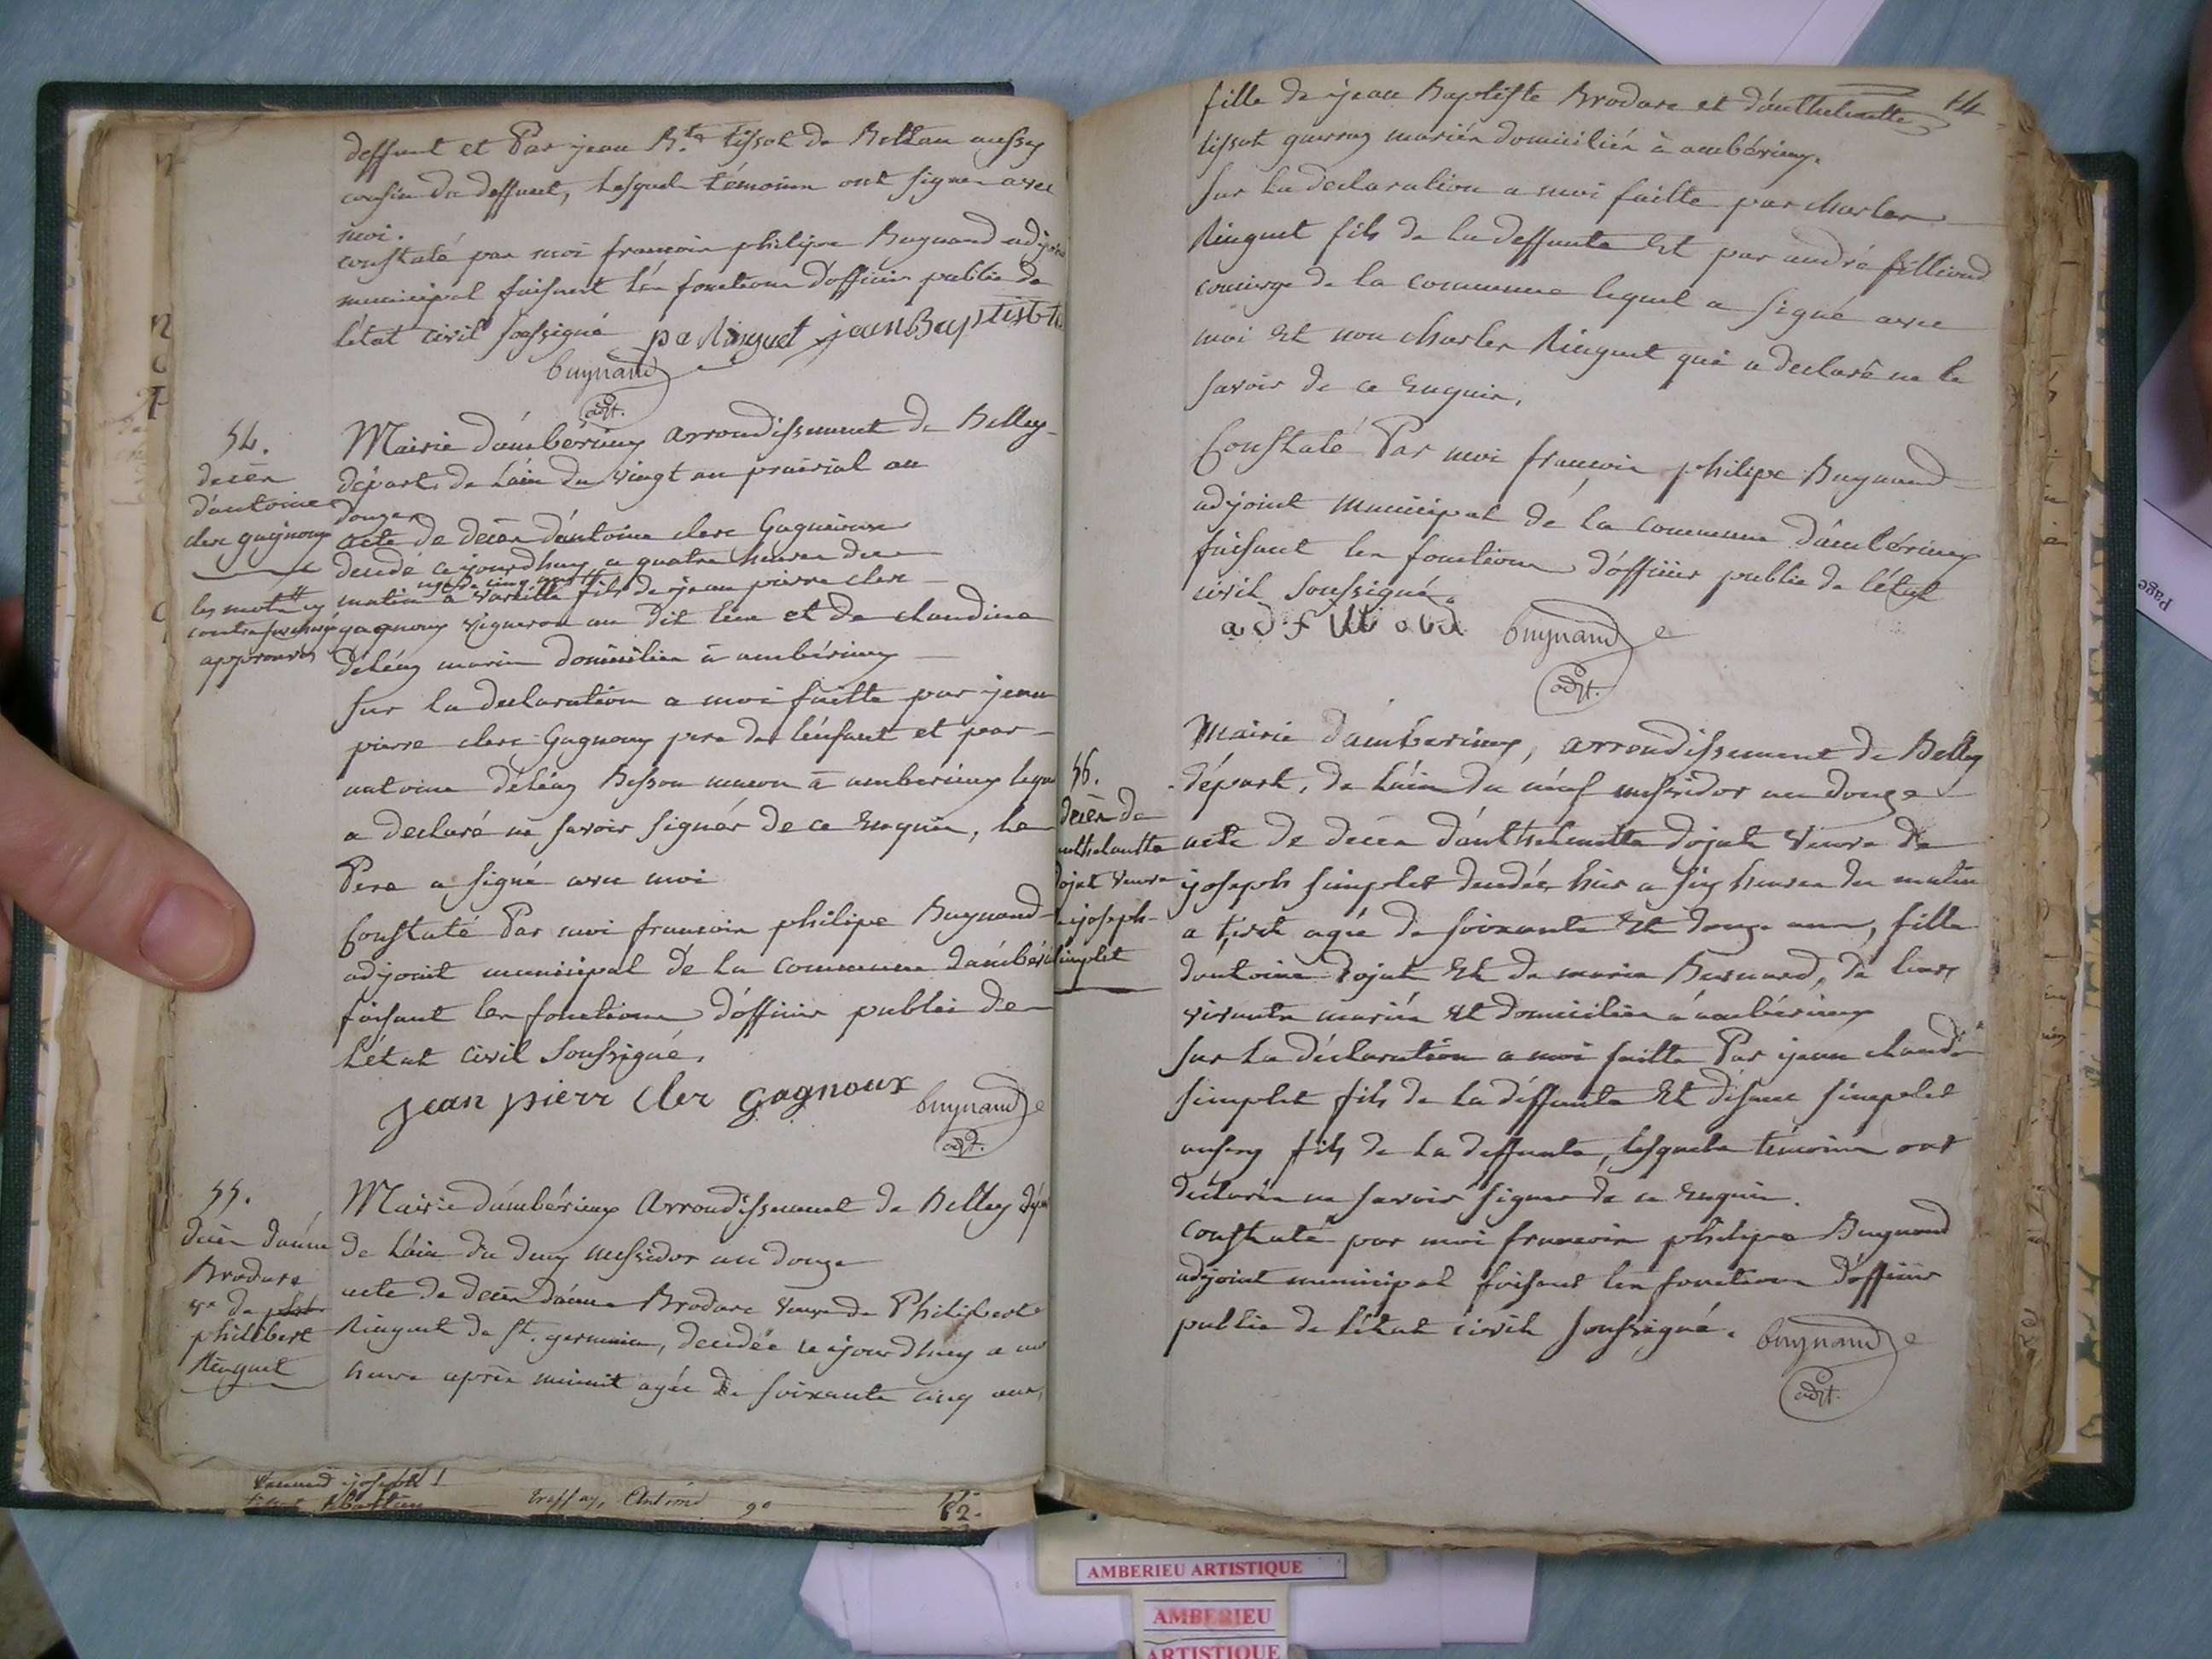 deffunt et Par jean B.te tissot de Bettan aussy
cousin du deffunt, lesquels témoins ont signer avec
moi.
constaté par moi francois philipe Bugnand adjoint
municipal faisant les fonctions d'officier public de
l'état civil soussigné pe Ringuet jean Baptist ti
buynand
adjt.
54.
decès
d'antoine
clerc gagnoux
les mots
contre surchargé
approuvés
Mairie d'ambérieux arrondissement de Belley
départ. de l'ain du vingt un prairial an
douze
acte de decès d'antoine clerc Gagnioux
decedé cejourdhuy a quatre heures du
agé de cinq ans
matin a Vareille fils de jean pierre clerc
gagnoux vigneron au dit lieu et de claudine
déléaz mariés domiciliés à ambérieux
sur la declaration a moi faitte par jean
pierre clerc Gagnoux pere de l'enfant et par
antoine déléaz Besson macon à amberieux lequel
a declaré ne savoir signer de ce Enquis, le
Pere a signé avec moi
Constaté Par moi francois philipe Bugnand
adjoint municipal de la commune d'ambéri
faisant les fonctions d'officier public de
l'état civil soussigné.
jean pierr cler gagnoux buynand
adjt.
55.
decès d'anne
Brodare
ve de
philibert
Ringuet
Mairie d'ambérieux Arrondissement de Belley dépt
de l'ain du deux messidor an douze
acte de decès d'anne Brodare veuve de Philibert
Ringuet de st. germain, decedée cejourdhuy a une
heure après minuit agée de soixante cinq ans,
joseph 1
Antoine 90
82.
14
fille de jean Baptiste Brodare et d'anthelmette
tissot guerray mariés domiciliés à ambérieux.
Sur la declaration a moi faitte par charles
Ringuet fils de la deffunte Et par andré fillioud
concierge de la commune lequel a signé avec
moi Et non charles Ringuet qui a declaré ne le
savoir de ce Enquis.
Constaté Par moi francois philipe Bugnand
adjoint municipal de la commune d'ambérieux
faisant les fonctions d'officier public de l'état
civil soussigné.
ad fillioud buynand
adjt.
56.
decès de
anthelmette
dojat veuve
de joseph
simplet
Mairie d'amberieux, arrondissement de Belley
départ. de l'ain du neuf messidor an douze
acte de decès d'anthelmette dojat veuve de
joseph simplet decedée hier a six heures du matin
a tiret agée de soixante Et douze ans, fille
d'antoine dojat Et de marie Bernard, de leurs
vivants mariés Et domiciliés à ambérieux
sur la déclaration a moi faitte Par jean claude
simplet fils de la déffunte Et simplet
aussy fils de la deffunte, lesquels témoins ont
déclarés ne savoir signer de ce Enquis.
constaté par moi francois philipe Bugnand
adjoint municipal faisant les fonctions d'officier
public de l'état civil soussigné. buynand
adjt.
Page
AMBERIEU ARTISTIQUE
AMBERIEU
ARTISTIQUE